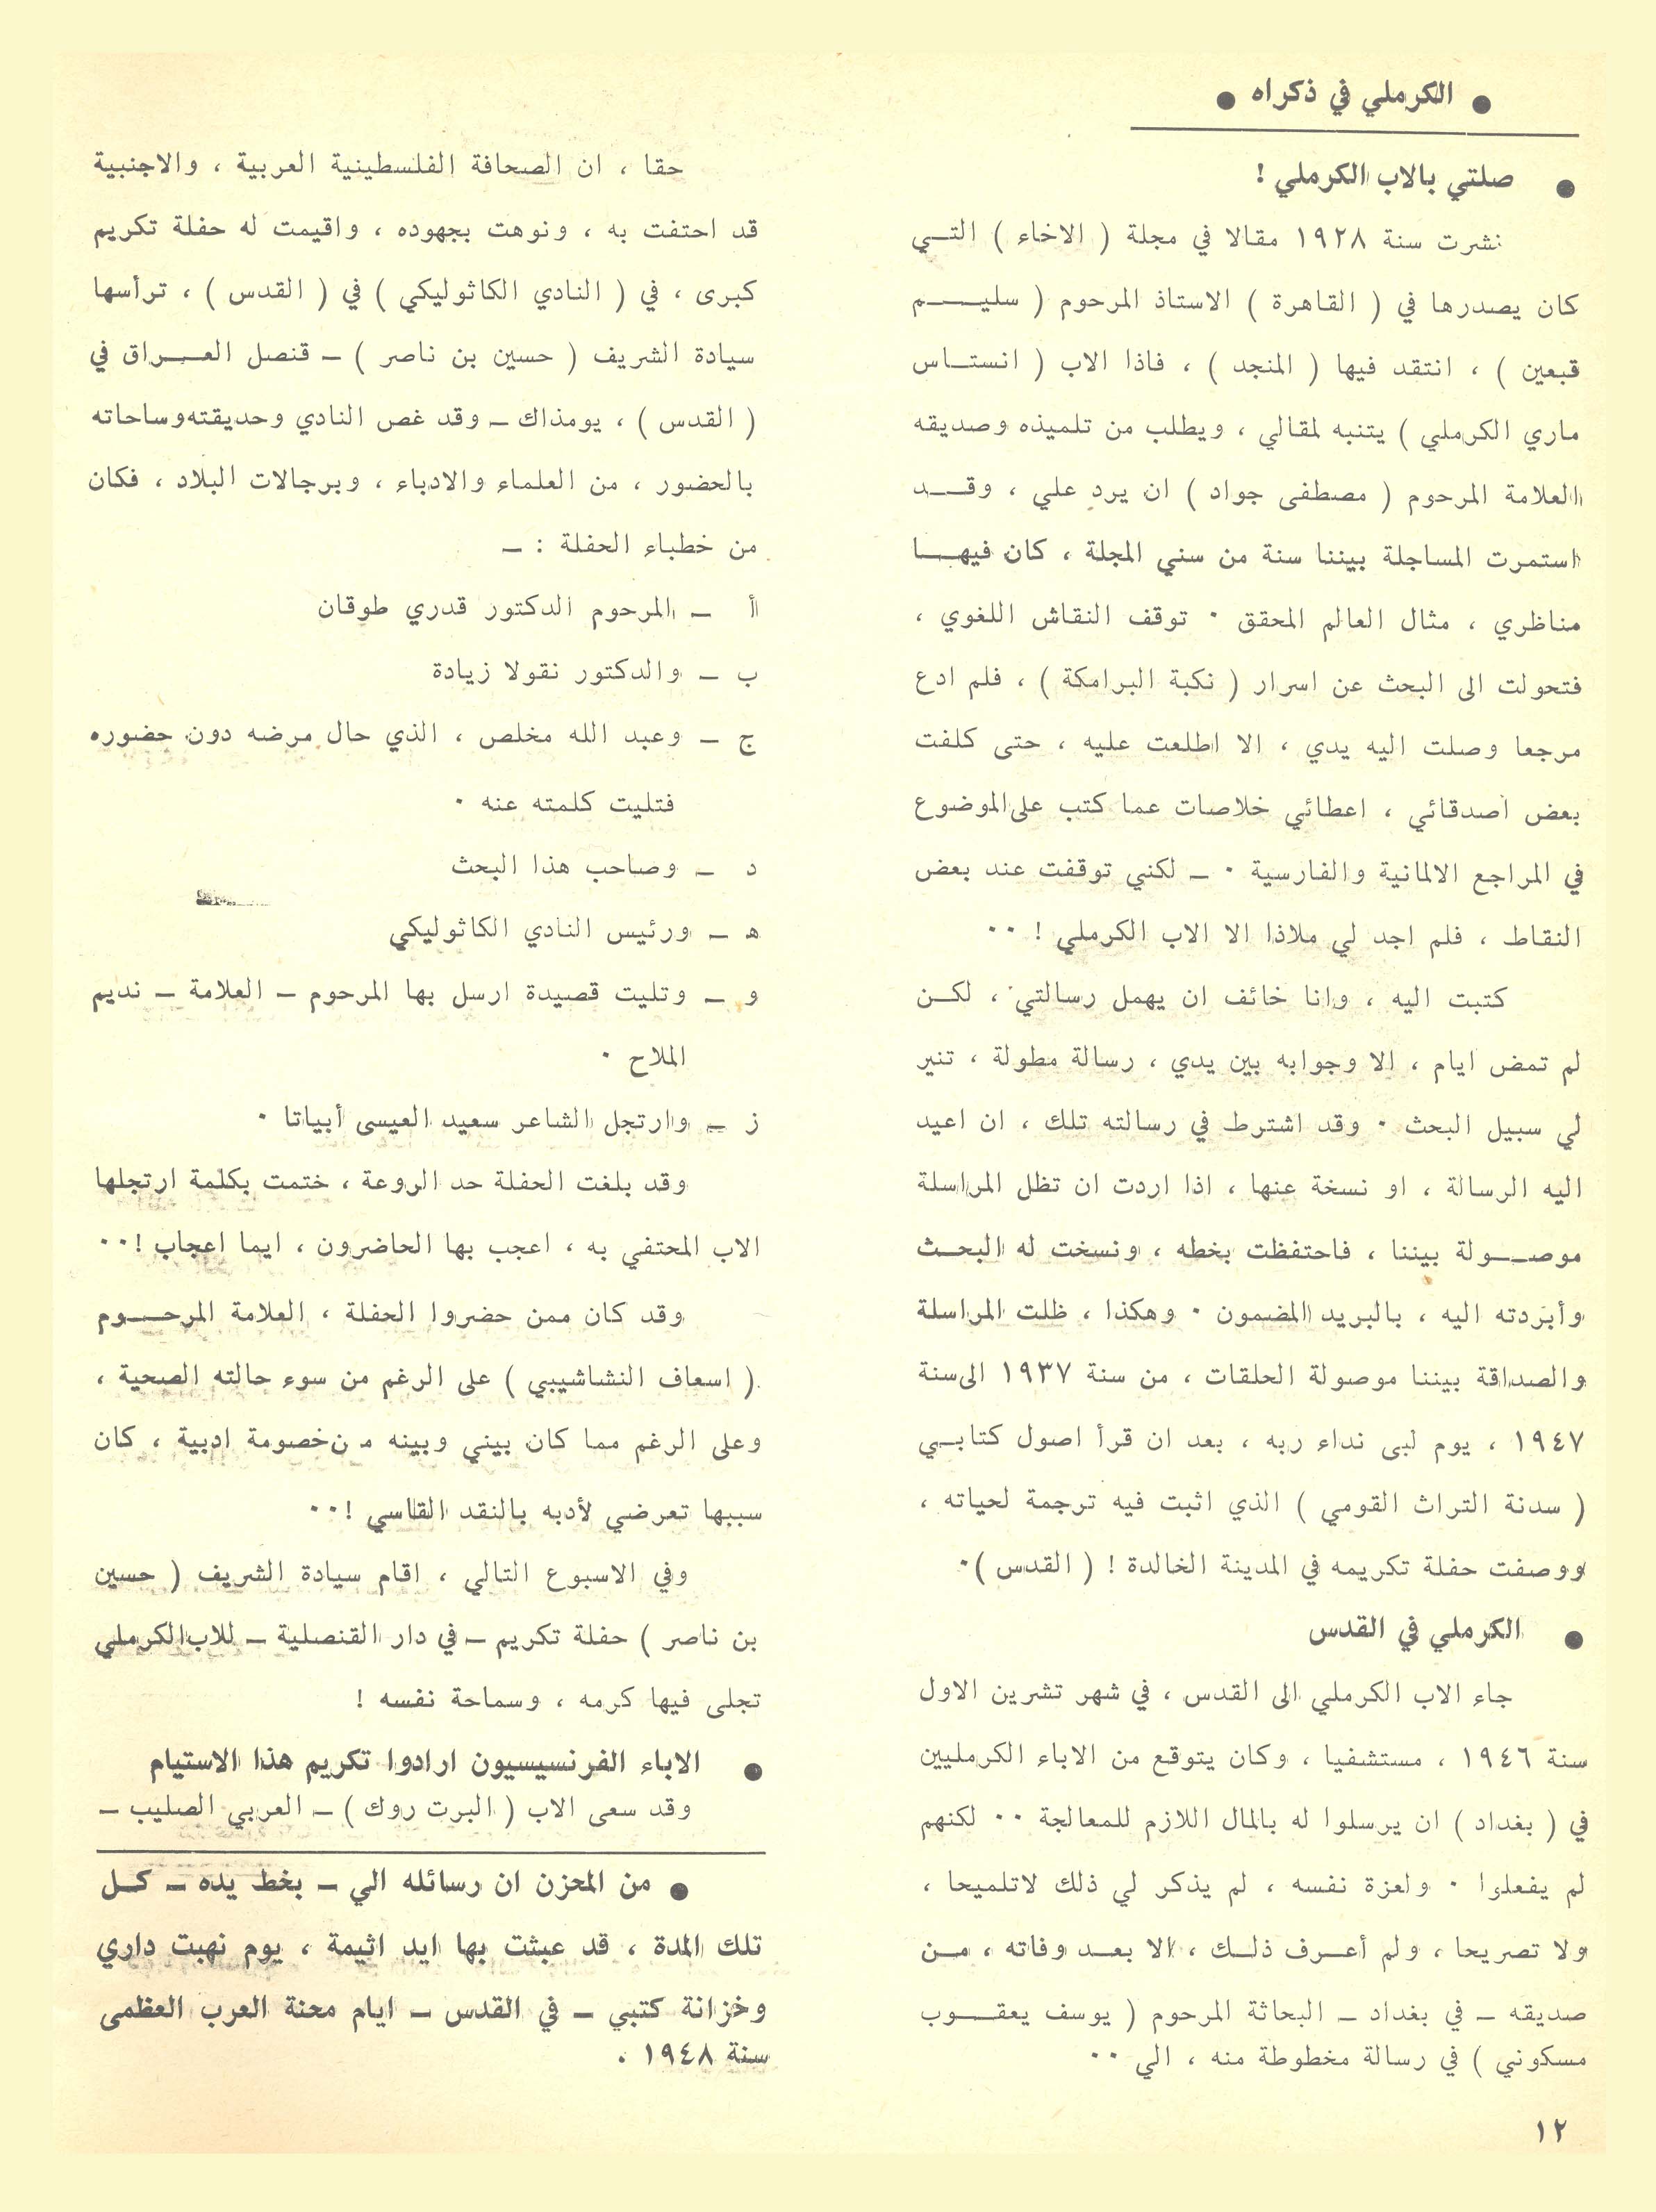 ● الكرملي في ذكراه ●
● صلتي بالاب الكرملي !
نشرت سنة ١٩٢٨ مقالا في مجلة ( الاخاء ) التـي
كان يصدرها في ( القاهرة ) الاستاذ المرحوم ( سليـــم
قبعين ) ، انتقد فيها ( المنجد ) ، فاذا الاب ( انستـاس
ماري الكرملي ) يتنبه لمقالي ، ويطلب من تلميذه وصديقه
العلامة المرحوم ( مصطفى جواد ) ان يرد علي ، وقــد
استمرت المساجلة بيننا سنة من سني المجلة ، كان فيهــا
مناظري ، مثال العالم المحقق ٠ توقف النقاش اللغوي ،
فتحولت الى البحث عن اسرار ( نكبة البرامكة ) ، فلم ادع
مرجعا وصلت اليه يدي ، الا اطلعت عليه ، حتى كلفت
بعض أصدقائي ، اعطائي خلاصات عما كتب على الموضوع
في المراجع الالمانية والفارسية ٠ ــ لكني توقفت عند بعض
النقاط ، فلم اجد لي ملاذا الا الاب الكرملي ! ٠٠
كتبت اليه ، وانا خائف ان يهمل رسالتي ، لكـن
لم تمض ايام ، الا وجوابه بين يدي ، رسالة مطولة ، تنير
لي سبيل البحث ٠ وقد اشترط في رسالته تلك ، ان اعيد
اليه الرسالة ، او نسخة عنها ، اذا اردت ان تظل المراسلة
موصــولة بيننا ، فاحتفظت بخطه ، ونسخت له البحـث
وأبردته اليه ، بالبريد المضمون ٠ وهكذا ، ظلت المراسلة
والصداقة بيننا موصولة الحلقات ، من سنة ١٩٣٧ الى سنة
١٩٤٧ ، يوم لبى نداء ربه ، بعد ان قرأ اصول كتابـي
( سدنة التراث القومي ) الذي اثبت فيه ترجمة لحياته ،
ووصفت حفلة تكريمه في المدينة الخالدة ! ( القدس )٠
● الكرملي في القدس
جاء الاب الكرملي الى القدس ، في شهر تشرين الاول
سنة ١٩٤٦ ، مستشفيا ، وكان يتوقع من الاباء الكرمليين
في ( بغداد ) ان يرسلوا له بالمال اللازم للمعالجة ٠٠ لكنهم
لم يفعلوا ٠ ولعزة نفسه ، لم يذكر لي ذلك لاتلميحا ،
ولا تصريحا ، ولم أعـرف ذلـك ، الا بعـد وفاته ، مـن
صديقه ــ في بغداد ــ البحاثة المرحوم ( يوسف يعقــوب
مسكوني ) في رسالة مخطوطة منه ، الي ٠٠
حقا ، ان الصحافة الفلسطينية العربية ، والاجنبية
قد احتفت به ، ونوهت بجهوده ، واقيمت له حفلة تكريم
كبرى ، في ( النادي الكاثوليكي ) في ( القدس ) ، ترأسها
سيادة الشريف ( حسين بن ناصر ) ــ قنصل العــراق في
( القدس ) ، يومذاك ــ وقد غص النادي وحديقته وساحاته
بالحضور ، من العلماء والادباء ، وبرجالات البلاد ، فكان
من خطباء الحفلة : ــ
أ ــ المرحوم الدكتور قدري طوقان
ب ــ والدكتور نقولا زيادة
ج ــ وعبد الله مخلص ، الذي حال مرضه دون حضوره
فتليت كلمته عنه ٠
د ــ وصاحب هذا البحث
هـ ــ ورئيس النادي الكاثوليكي
و ــ وتليت قصيدة ارسل بها المرحوم ــ العلامة ــ نديم
الملاح ٠
ز ــ وارتجل الشاعر سعيد العيسى أبياتا ٠
وقد بلغت الحفلة حد الروعة ، ختمت بكلمة ارتجلها
الاب المحتفي به ، اعجب بها الحاضرون ، ايما اعجاب !٠٠
وقد كان ممن حضروا الحفلة ، العلامة المرحــوم
( اسعاف النشاشيبي ) على الرغم من سوء حالته الصحية ،
وعلى الرغم مما كان بيني وبينه من خصومة ادبية ، كان
سببها تعرضي لأدبه بالنقد القاسي !٠٠
وفي الاسبوع التالي ، اقام سيادة الشريف ( حسين
بن ناصر ) حفلة تكريم ــ في دار القنصلية ــ للاب الكرملي
تجلى فيها كرمه ، وسماحة نفسه !
● الاباء الفرنسيسيون ارادوا تكريم هذا الاستيام
وقد سعى الاب ( البرت روك ) ــ العربي الصليب ــ
● من المحزن ان رسائله الي ــ بخط يده ــ كـل
تلك المدة ، قد عبثت بها ايد اثيمة ، يوم نهبت داري
وخزانة كتبي ــ في القدس ــ ايام محنة العرب العظمى
سنة ١٩٤٨ ٠
١٢